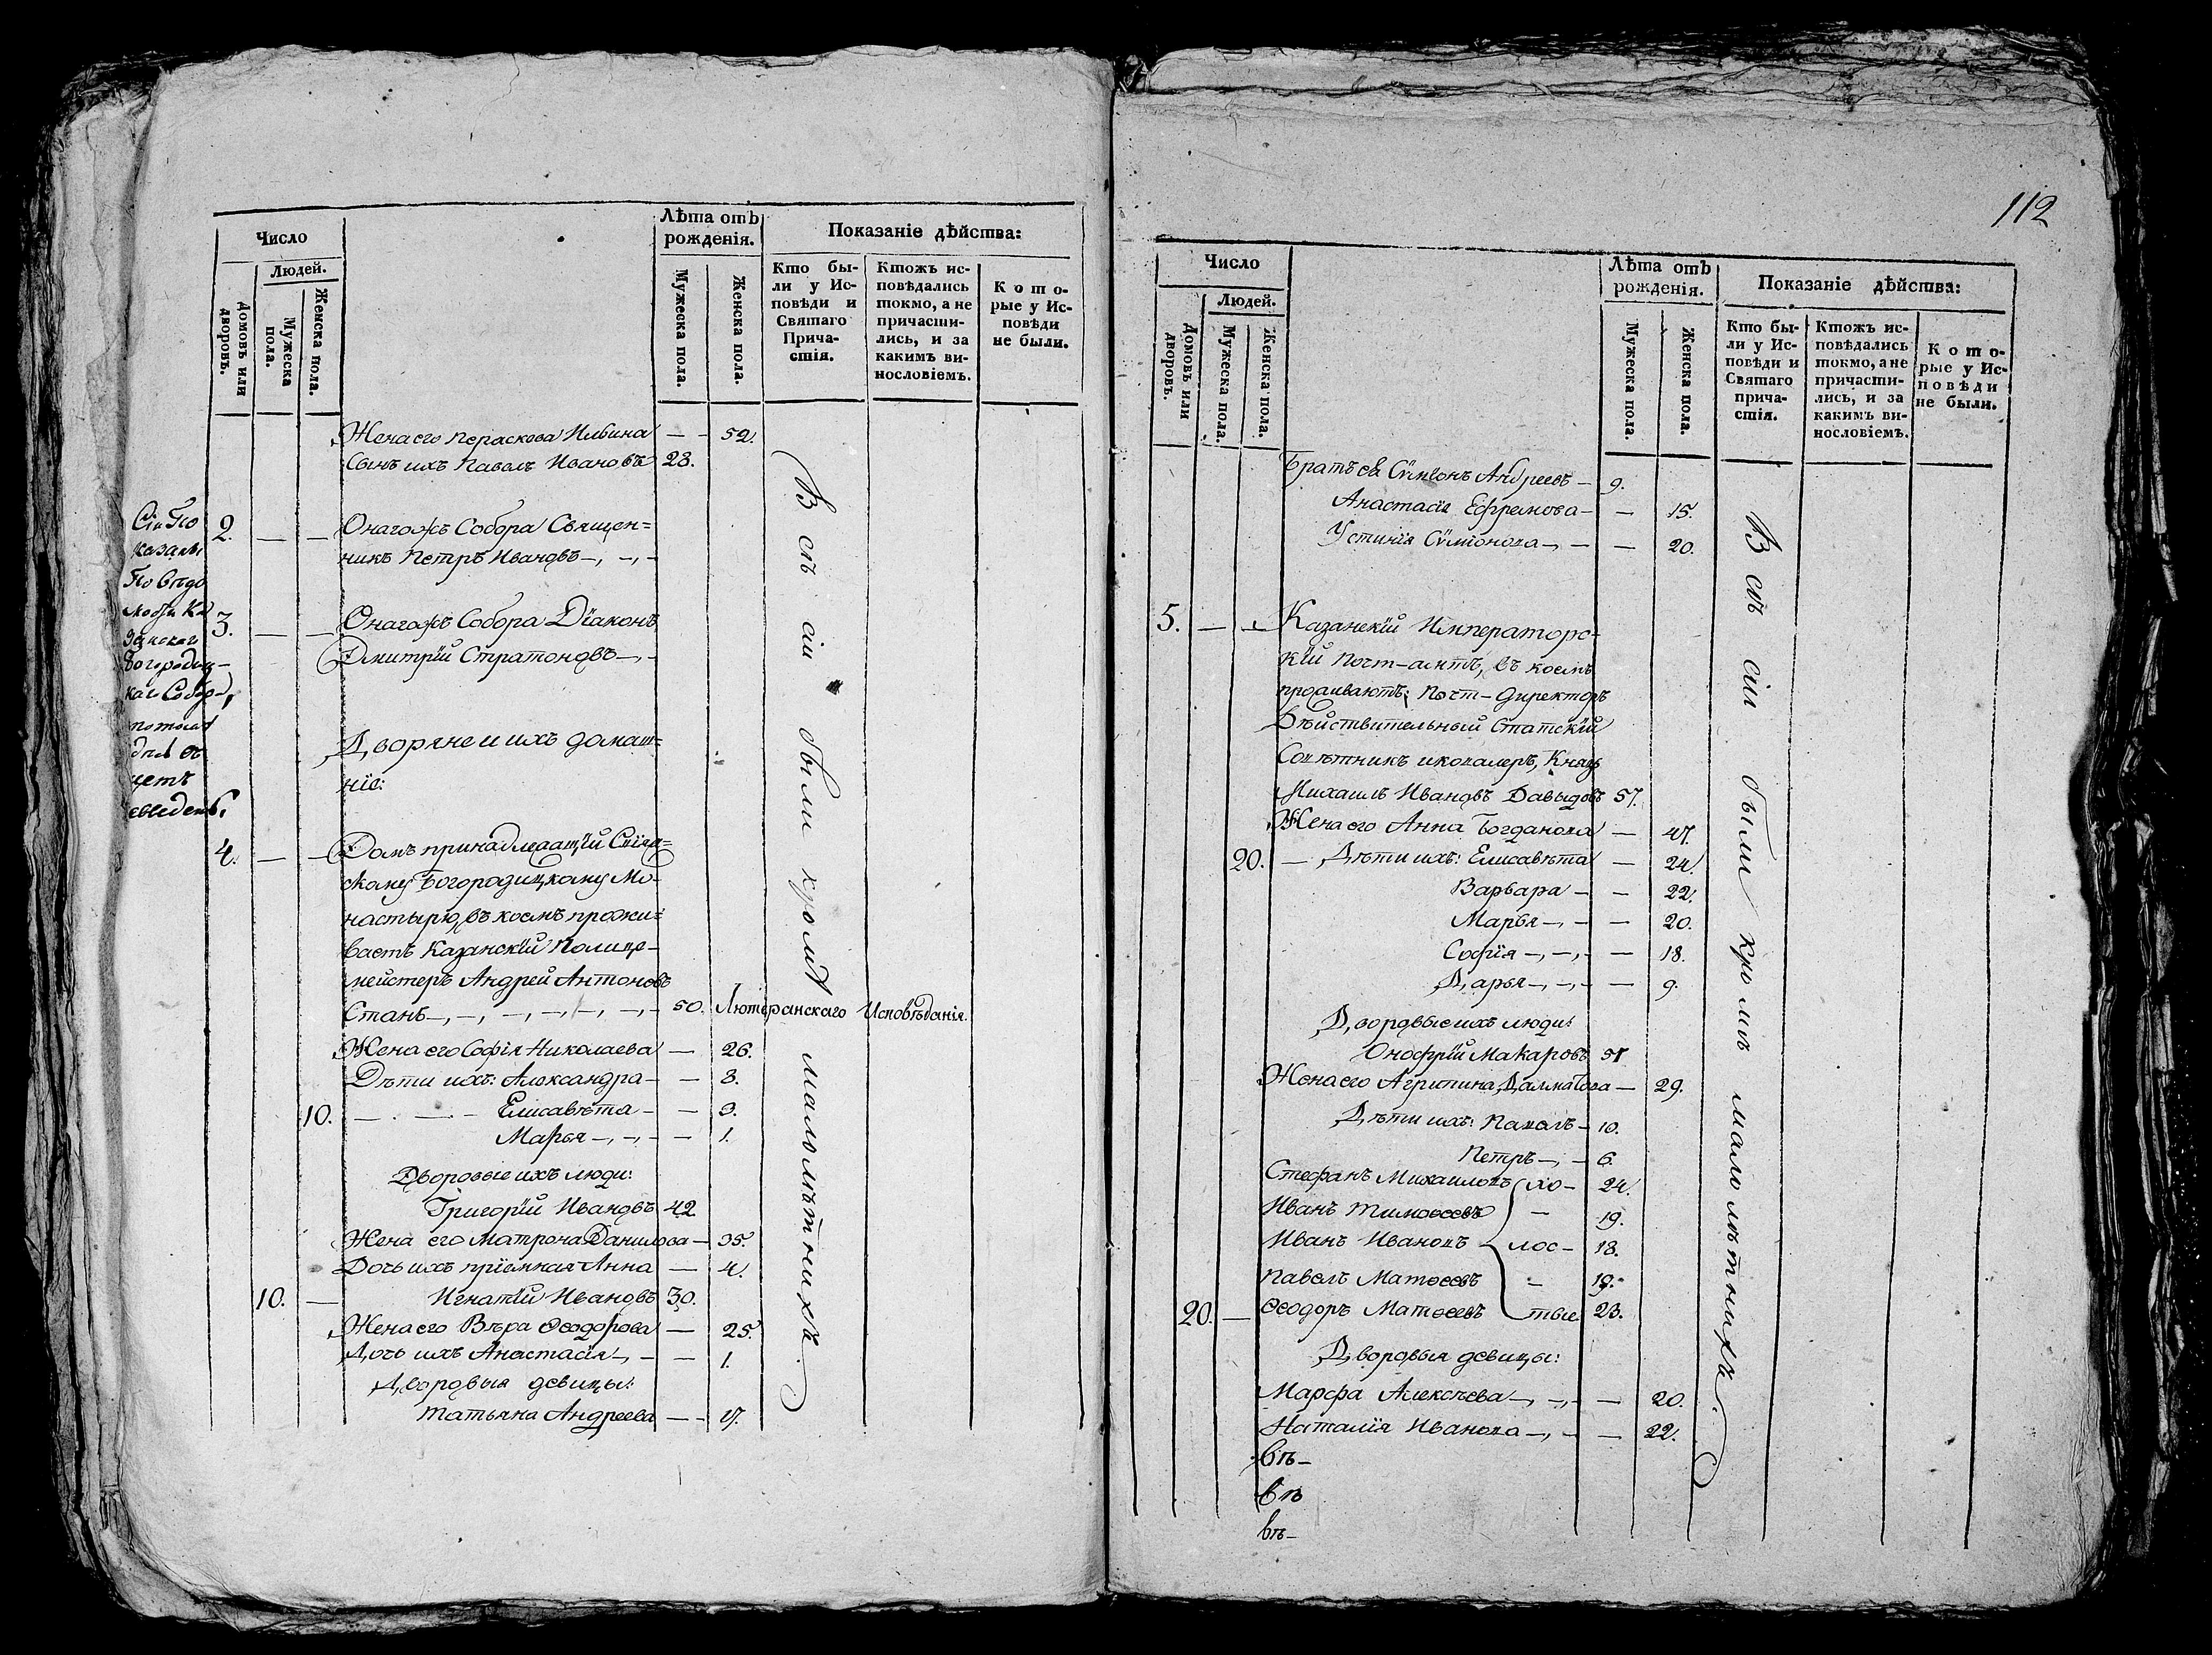 Число
Людей.
Домовъ или дворовъ.
Мужеска пола.
Женска пола.
Лѣта отъ
рожденія.
Мужеска пола.
Женска пола.
Показаніе дѣйства:
Кто бы-
ли у Ис-
повѣди и
Святаго
Прича-
стія.
Ктожъ ис-
повѣдались
токмо, а не
причасти-
лись, и за
какимъ ви-
нословіемъ.
Кото-
рые у Ис-
повѣди
не были.
Жена его Пераскова Ильина — - 52.
Сынъ ихъ Павелъ Ивановъ 23.
2. — — Онагожъ Собора Священ=
никъ Петръ Ивановъ
3. — — Онагожъ Собора Діаконъ
Дмитрій Стратоновъ
Сіи По
казаны
По Вѣдо
мости Ка
занскаго
Богородиц-
каго Собор-,
потому
въ
щетъ
Дворяне и ихъ домаш=
ніе:
4. — — Домъ принадлежащій
Богородицкому Мо-
настырю, въ коемъ прожи=
ваетъ Казанскій Полице-
мейстеръ Андрей Антоновъ
Станъ 50. Лютеранскаго Исповѣданія.
Жена его Софія Николаева — 26.
Дѣти ихъ: Александра — - 8.
10. — Елисавѣта — - 3.
Марья — 1.
Дворовые ихъ люди:
Григорій Ивановъ 42
Жена его Матрона Данилова — 35.
Дочь ихъ пріемная Анна — 4.
10. — Игнатій Ивановъ 30.
Жена его Вѣра Ѳеодорова — 25.
Дочь ихъ Анастасія — 1.
Дворовыя девицы:
Татьяна Андреева — - 17.
Всѣ сіи были кромѣ малолѣтнихъ.
112
Число
Людей.
Домовъ или дворовъ.
Мужеска пола.
Женска пола.
Лѣта отъ
рожденія.
Мужеска пола.
Женска пола.
Показаніе дѣйства:
Кто бы-
ли у Ис-
повѣди и
Святаго
прича-
стія.
Ктожъ ис-
повѣдались
токмо, а не
причасти-
лись, и за
какимъ ви-
нословіемъ.
Кото-
рые у Ис-
повѣди
не были.
Братъ ея Сѵмеонъ Андреевъ — 9.
Анастасія Ефремова — — 15.
Устинія Сѵмионова — — 20.
5. — — Казанскій Императорс-
кій Почт-амтъ, въ коемъ
проживаютъ: Почт-Директоръ
Дѣйствительный Статскій
Совѣтникъ и ковалеръ, Князь
Михаилъ Ивановъ Давыдовъ 57.
Жена его Анна Богданова — 47.
20. — Дѣти ихъ: Елисавѣта — 24.
Варвара — — 22.
Марья — — 20.
Софія — — 18.
Дарья — — 9.
Дворовые ихъ люди:
Онофрій Макаровъ 51
Жена его Агрипина Далматова — 29.
Дѣти ихъ: Павелъ — 10.
Петръ — 6.
Стефанъ Михаиловъ хо- 24.
Иванъ Тимоѳеевъ — 19.
Иванъ Ивановъ лос- 18.
Павелъ Матѳеевъ — 19.
20. — Ѳеодоръ Матѳеевъ тые 23.
Дворовыя девицы:
Марфа Алексѣева — 20.
Наталія Иванова — 22.
въ-
въ
въ-
Всѣ сіи были кромѣ малолѣтнихъ.